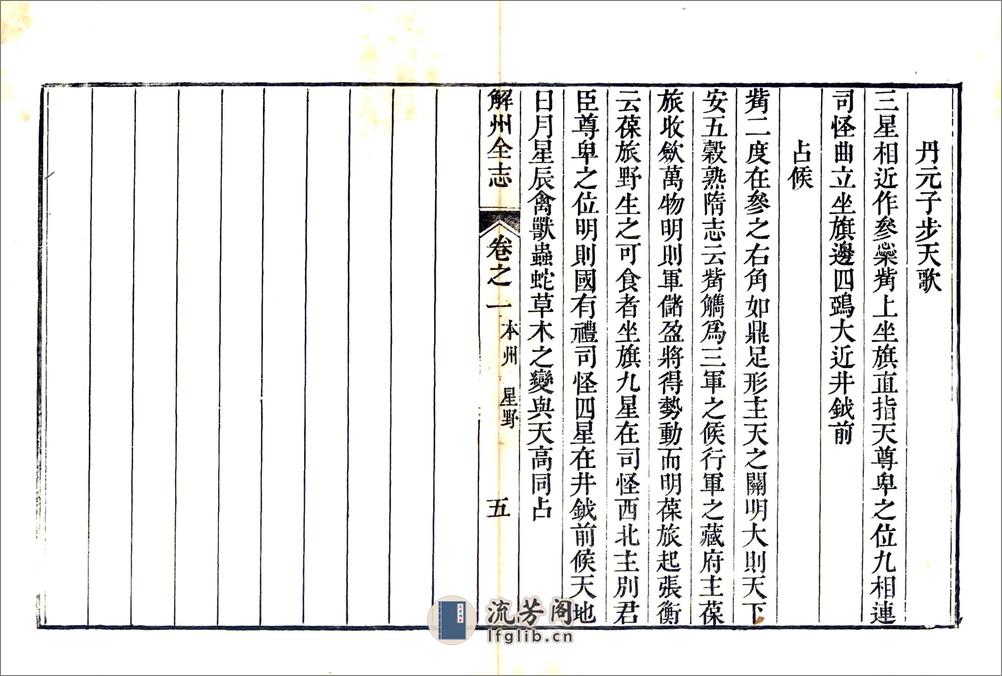 丹元子步天歌
三星相近作參蘂觜上坐旗直指天尊卑之位九相連
司怪曲立坐旗邊四鴉大近井鉞前
占候
觜二度在參之右角如鼎足形主天之關明大則天下
安五穀熟隋志云觜觿爲三軍之候行軍之藏府主葆
旅收斂萬物明則軍儲盈將得勢動而明葆旅起張衡
云葆旅野生之可食者坐旗九星在司怪西北主別君
臣尊卑之位明則國有禮司怪四星在井鉞前候天地
日月星辰禽獸蟲蛇草木之變與天高同占
解州全志 卷之一 本州 星野 五
流芳阁
lfglib.cn